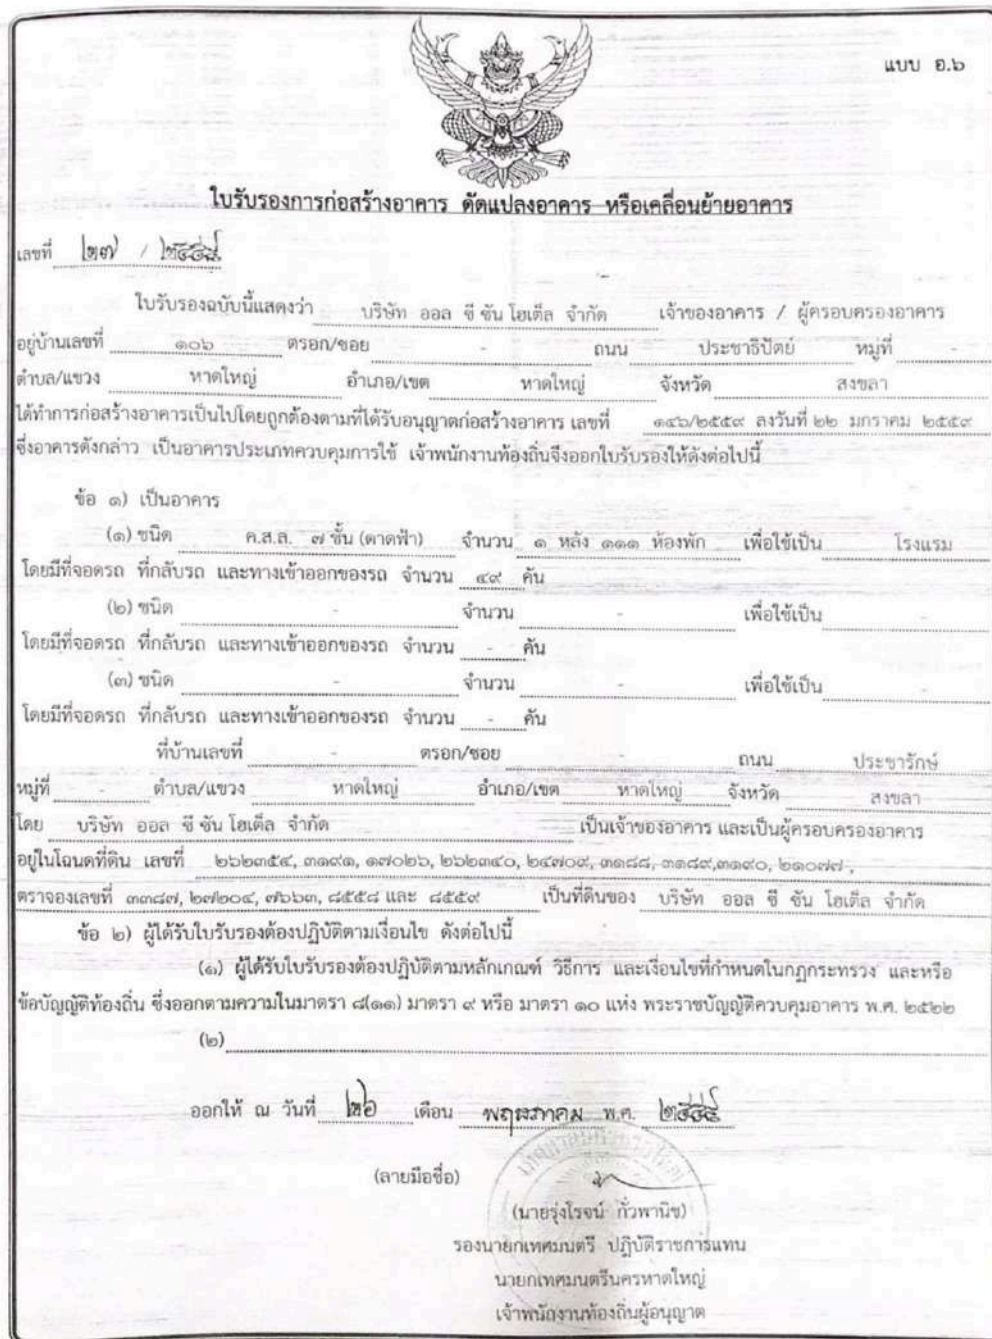 แบบ อ.๖
ใบรับรองการก่อสร้างอาคาร ดัดแปลงอาคาร หรือเคลื่อนย้ายอาคาร
เลขที่ ๒๗ /
ใบรับรองฉบับนี้แสดงว่า บริษัท ออล ซี ซัน โฮเต็ล จำกัด เจ้าของอาคาร / ผู้ครอบครองอาคาร
อยู่บ้านเลขที่ ๑๐๖ ตรอก/ซอย - ถนน ประชาธิปัตย์ หมู่ที่ -
ตำบล/แขวง หาดใหญ่ อำเภอ/เขต หาดใหญ่ จังหวัด สงขลา
ได้ทำการก่อสร้างอาคารเป็นไปโดยถูกต้องตามที่ได้รับอนุญาตก่อสร้างอาคาร เลขที่ ๑๔๖/๒๕๕๙ ลงวันที่ ๒๒ มกราคม ๒๕๕๙
ซึ่งอาคารดังกล่าว เป็นอาคารประเภทควบคุมการใช้ เจ้าพนักงานท้องถิ่นจึงออกใบรับรองให้ดังต่อไปนี้
ข้อ ๑) เป็นอาคาร
(๑) ชนิด ค.ส.ล. ๗ ชั้น (ดาดฟ้า) จำนวน ๑ หลัง ๑๑๑ ห้องพัก เพื่อใช้เป็น โรงแรม
โดยมีที่จอดรถ ที่กลับรถ และทางเข้าออกของรถ จำนวน ๔๙ คัน
(๒) ชนิด - จำนวน - เพื่อใช้เป็น -
โดยมีที่จอดรถ ที่กลับรถ และทางเข้าออกของรถ จำนวน - คัน
(๓) ชนิด - จำนวน - เพื่อใช้เป็น -
โดยมีที่จอดรถ ที่กลับรถ และทางเข้าออกของรถ จำนวน - คัน
ที่บ้านเลขที่ - ตรอก/ซอย - ถนน ประชารักษ์
หมู่ที่ - ตำบล/แขวง หาดใหญ่ อำเภอ/เขต หาดใหญ่ จังหวัด สงขลา
โดย บริษัท ออล ซี ซัน โฮเต็ล จำกัด เป็นเจ้าของอาคาร และเป็นผู้ครอบครองอาคาร
อยู่ในโฉนดที่ดิน เลขที่ ๒๖๒๓๕๔, ๓๑๙๑, ๑๗๐๒๖, ๒๖๒๓๔๐, ๒๔๗๐๙, ๓๑๘๘, ๓๑๘๙,๓๑๙๐, ๒๑๐๗๗,
ตราจองเลขที่ ๓๓๘๗, ๒๗๒๐๔, ๗๖๖๓, ๘๕๕๘ และ ๘๕๕๙ เป็นที่ดินของ บริษัท ออล ซี ซัน โฮเต็ล จำกัด
ข้อ ๒) ผู้ได้รับใบรับรองต้องปฏิบัติตามเงื่อนไข ดังต่อไปนี้
(๑) ผู้ได้รับใบรับรองต้องปฏิบัติตามหลักเกณฑ์ วิธีการ และเงื่อนไขที่กำหนดในกฎกระทรวง และหรือ
ข้อบัญญัติท้องถิ่น ซึ่งออกตามความในมาตรา ๘(๑๑) มาตรา ๙ หรือ มาตรา ๑๐ แห่ง พระราชบัญญัติควบคุมอาคาร พ.ศ. ๒๕๒๒
(๒)
ออกให้ ณ วันที่ ๒๖ เดือน พฤษภาคม พ.ศ.
(ลายมือชื่อ)
(นายรุ่งโรจน์ กั่วพานิช)
รองนายกเทศมนตรี ปฏิบัติราชการแทน
นายกเทศมนตรีนครหาดใหญ่
เจ้าพนักงานท้องถิ่นผู้อนุญาต